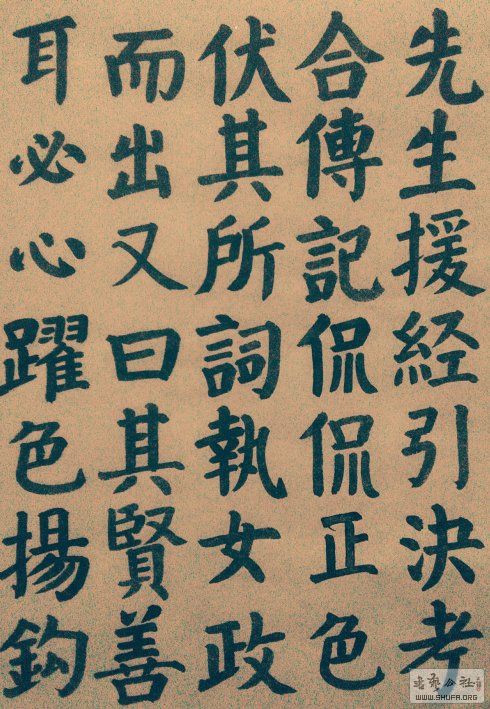 先生援経引決考
合傳記侃侃正色
伏其所詞執女政
而出又曰其賢善
耳必心躍色揚鈎
WWW.SHUFA.ORG